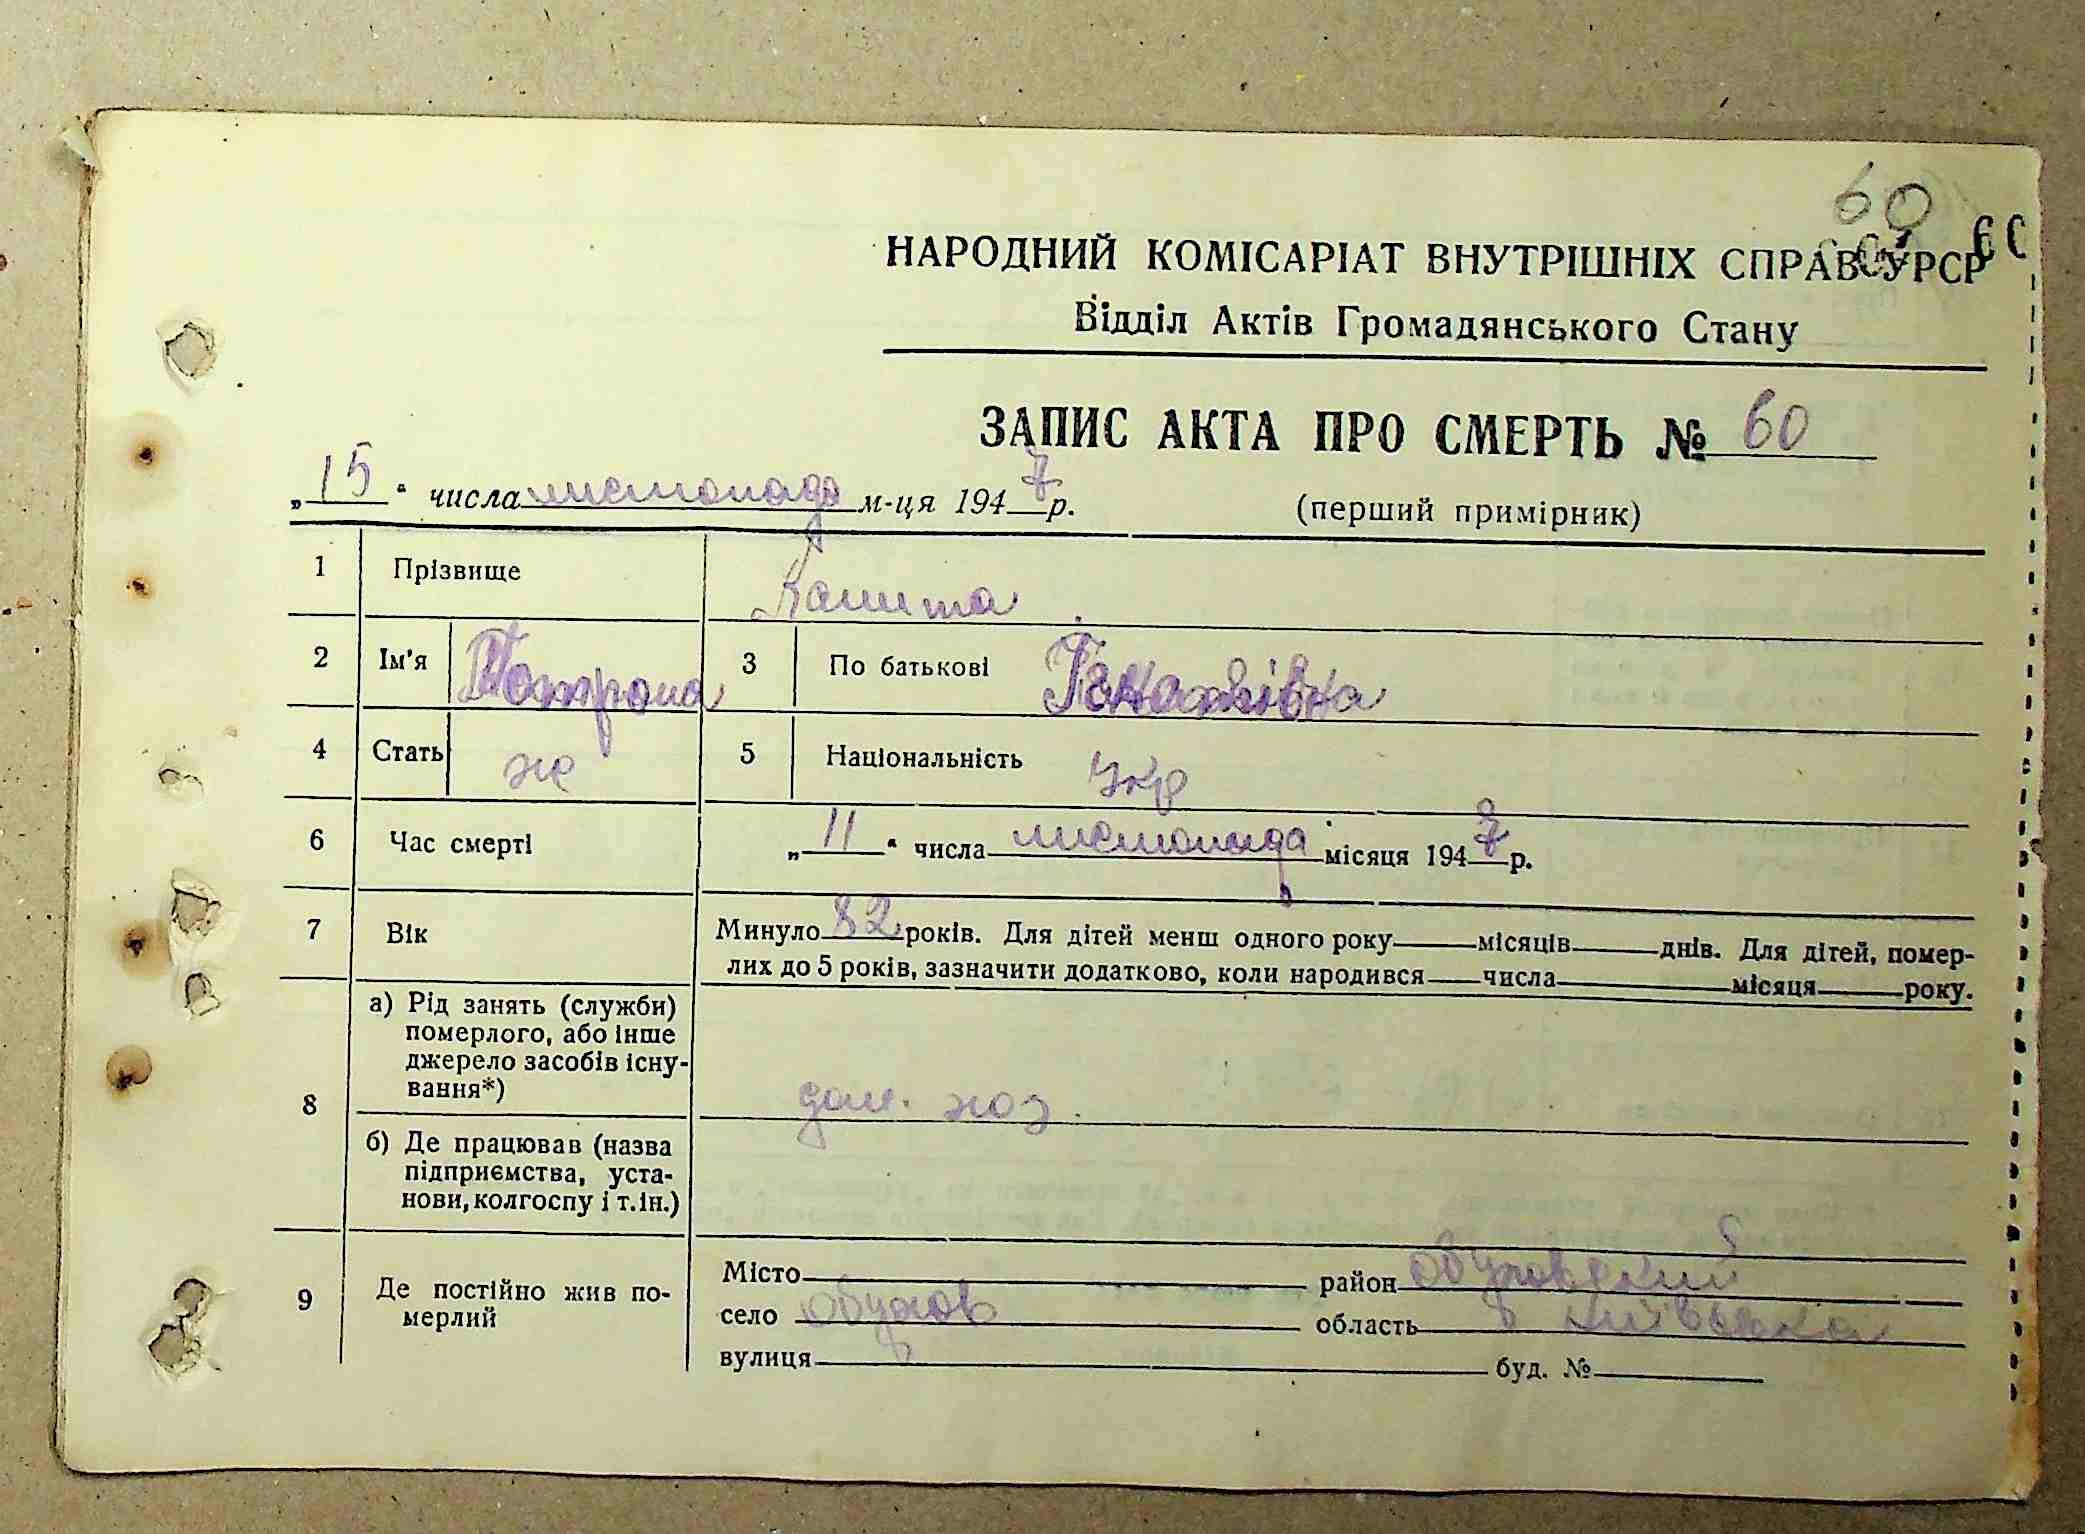 60
НАРОДНИЙ КОМІСАРІАТ ВНУТРІШНІХ СПРАВ УРСР
Відділ Актів Громадянського Стану
ЗАПИС АКТА ПРО СМЕРТЬ № 60
„ 15 “ числа листопада м-ця 1947 р.
(перший примірник)
1 Прізвище
2 Ім'я Мотрона 3 По батькові Гнатівна
4 Стать ж 5 Національність укр
6 Час смерті „ 11 “ числа листопада місяця 1947 р.
7 Вік Минуло 82 років. Для дітей менш одного року місяців днів. Для дітей, помер-
лих до 5 років, зазначити додатково, коли народився числа місяця року.
8 а) Рід занять (служби)
померлого, або інше
джерело засобів існу-
вання*)
дом. хоз.
б) Де працював (назва
підприємства, уста-
нови, колгоспу і т. ін.)
9 Де постійно жив по-
мерлий
Місто район Обуховский
село Обухов область Київська
вулиця буд. №